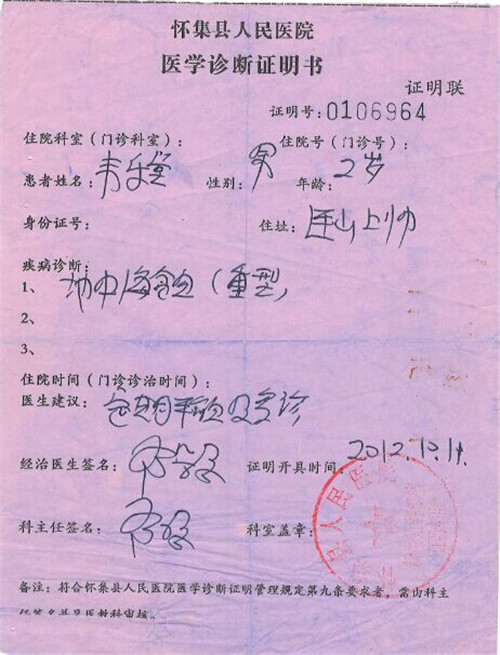 怀集县人民医院
医学诊断证明书
证明联
证明号:0106964
住院科室(门诊科室): 住院号(门诊号):
患者姓名:韦 性别:男 年龄:2岁
身份证号: 住址:连山上帅
疾病诊断:
1、地中海贫血(重型)
2、
3、
住院时间(门诊诊治时间):
医生建议:定期输血及复诊
经治医生签名: 证明开具时间:2012.12.14.
科主任签名: 科室盖章:
县人民医院
备注:符合怀集县人民医院医学诊断证明管理规定第九条要求者,需由科主
任签名并号医教科审核。